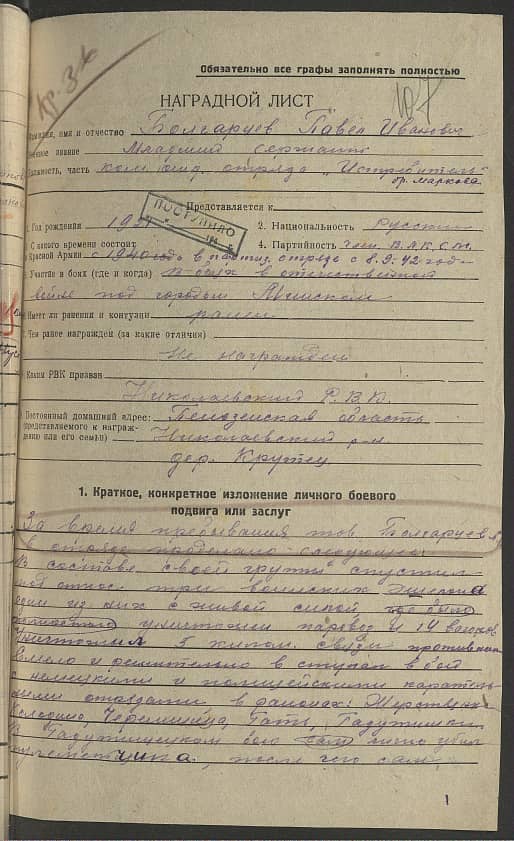 Кр. Зв
107
Обязательно все графы заполнять полностью
НАГРАДНОЙ ЛИСТ
Фамилия, имя и отчество Болгаруев Павел Иванович
Военное звание Младший сержант
Должность, часть ком. отряда "Истребитель"
бр. Маркова
Представляется к
ПОСТУПИЛО
1. Год рождения 2. Национальность Русский
С какого времени состоит 4. Партийность член В.Л.К.С.М.
в Красной Армии с 1940 года в партиз. отряде с 8.9.42 года
Участие в боях (где и когда) В боях в отечественной
войне под городом Минском
Имеет ли ранения и контузии ранен
Чем ранее награжден (за какие отличия)
Не награжден
Каким РВК призван
Николаевский Р.В.К.
Постоянный домашний адрес: область
(представляемого к награждению или его семьи) Николаевский р-н
дер. Крутец
1. Краткое, конкретное изложение личного боевого
подвига или заслуг
За время пребывания тов. Болгаруева
в отряде проделано следующее:
В составе своей группы спустил
под откос три воинских эшелона
один из них с живой силой где было
уничтожен паровоз и 14 вагонов
Уничтожил 5 килом. связи противника
Смело и решительно вступал в бой
с немецкими и полицейскими каратель
ными отрядами в районах:
Гать, Гадутишки
В Гадутишском бою сам лично убил
пулеметчика, после чего сам
1